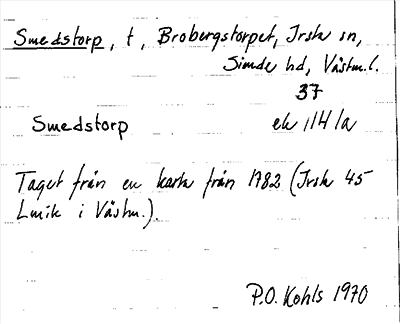 Smedstorp, t, Brobergstorpet, Irsta sn,
Siende hd, Västm.l.
37
Smedstorp ek 114/a
Taget från en karta från 1782 (Irsta 45
Lmik i Västm.).
P.O. Kohls 1970